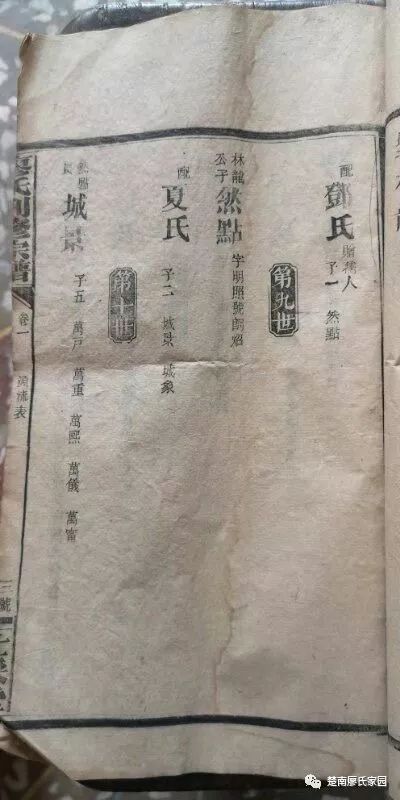 配 鄧氏 贈孺人 子一 然點
第九世
林龍公子 然點 字明照號朗炤
配 夏氏 子二 城景 城象
第十世
然點長 城景 子五 萬戸 萬重 萬熙 萬儀 萬富
廖氏 宗譜 卷一 源流表 三號
楚南廖氏家园